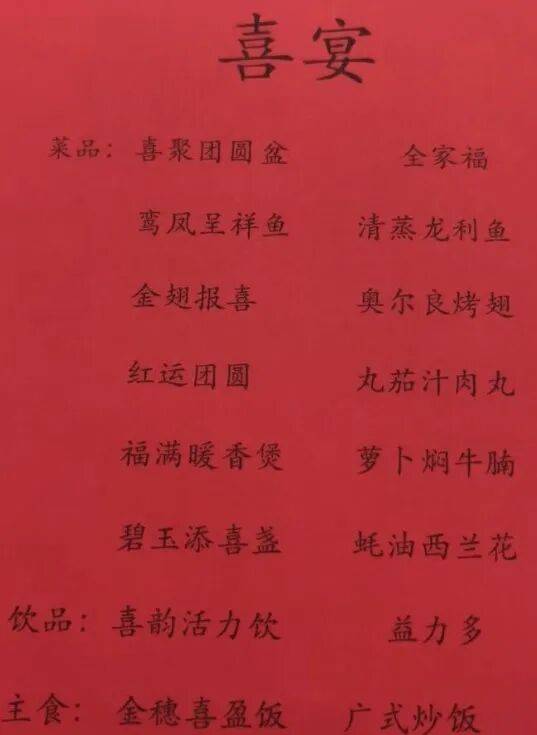 喜宴
菜品：喜聚团圆盆 全家福
鸾凤呈祥鱼 清蒸龙利鱼
金翅报喜 奥尔良烤翅
红运团圆 丸茄汁肉丸
福满暖香煲 萝卜焖牛腩
碧玉添喜盏 蚝油西兰花
饮品：喜韵活力饮 益力多
主食：金穗喜盈饭 广式炒饭